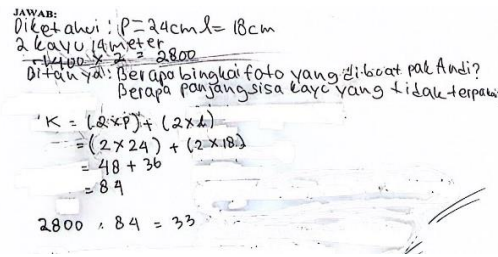 JAWAB:
Diketahui : P = 24 cm l = 18 cm
2 kayu 14 meter
1400 x 2 = 2800
Ditanya : Berapa bingkai foto yang dibuat pak Andi?
Berapa panjang sisa kayu yang tidak terpakai
K = (2xP) + (2xl)
= (2 x 24) + (2 x 18)
= 48 + 36
= 84
2800 : 84 = 33